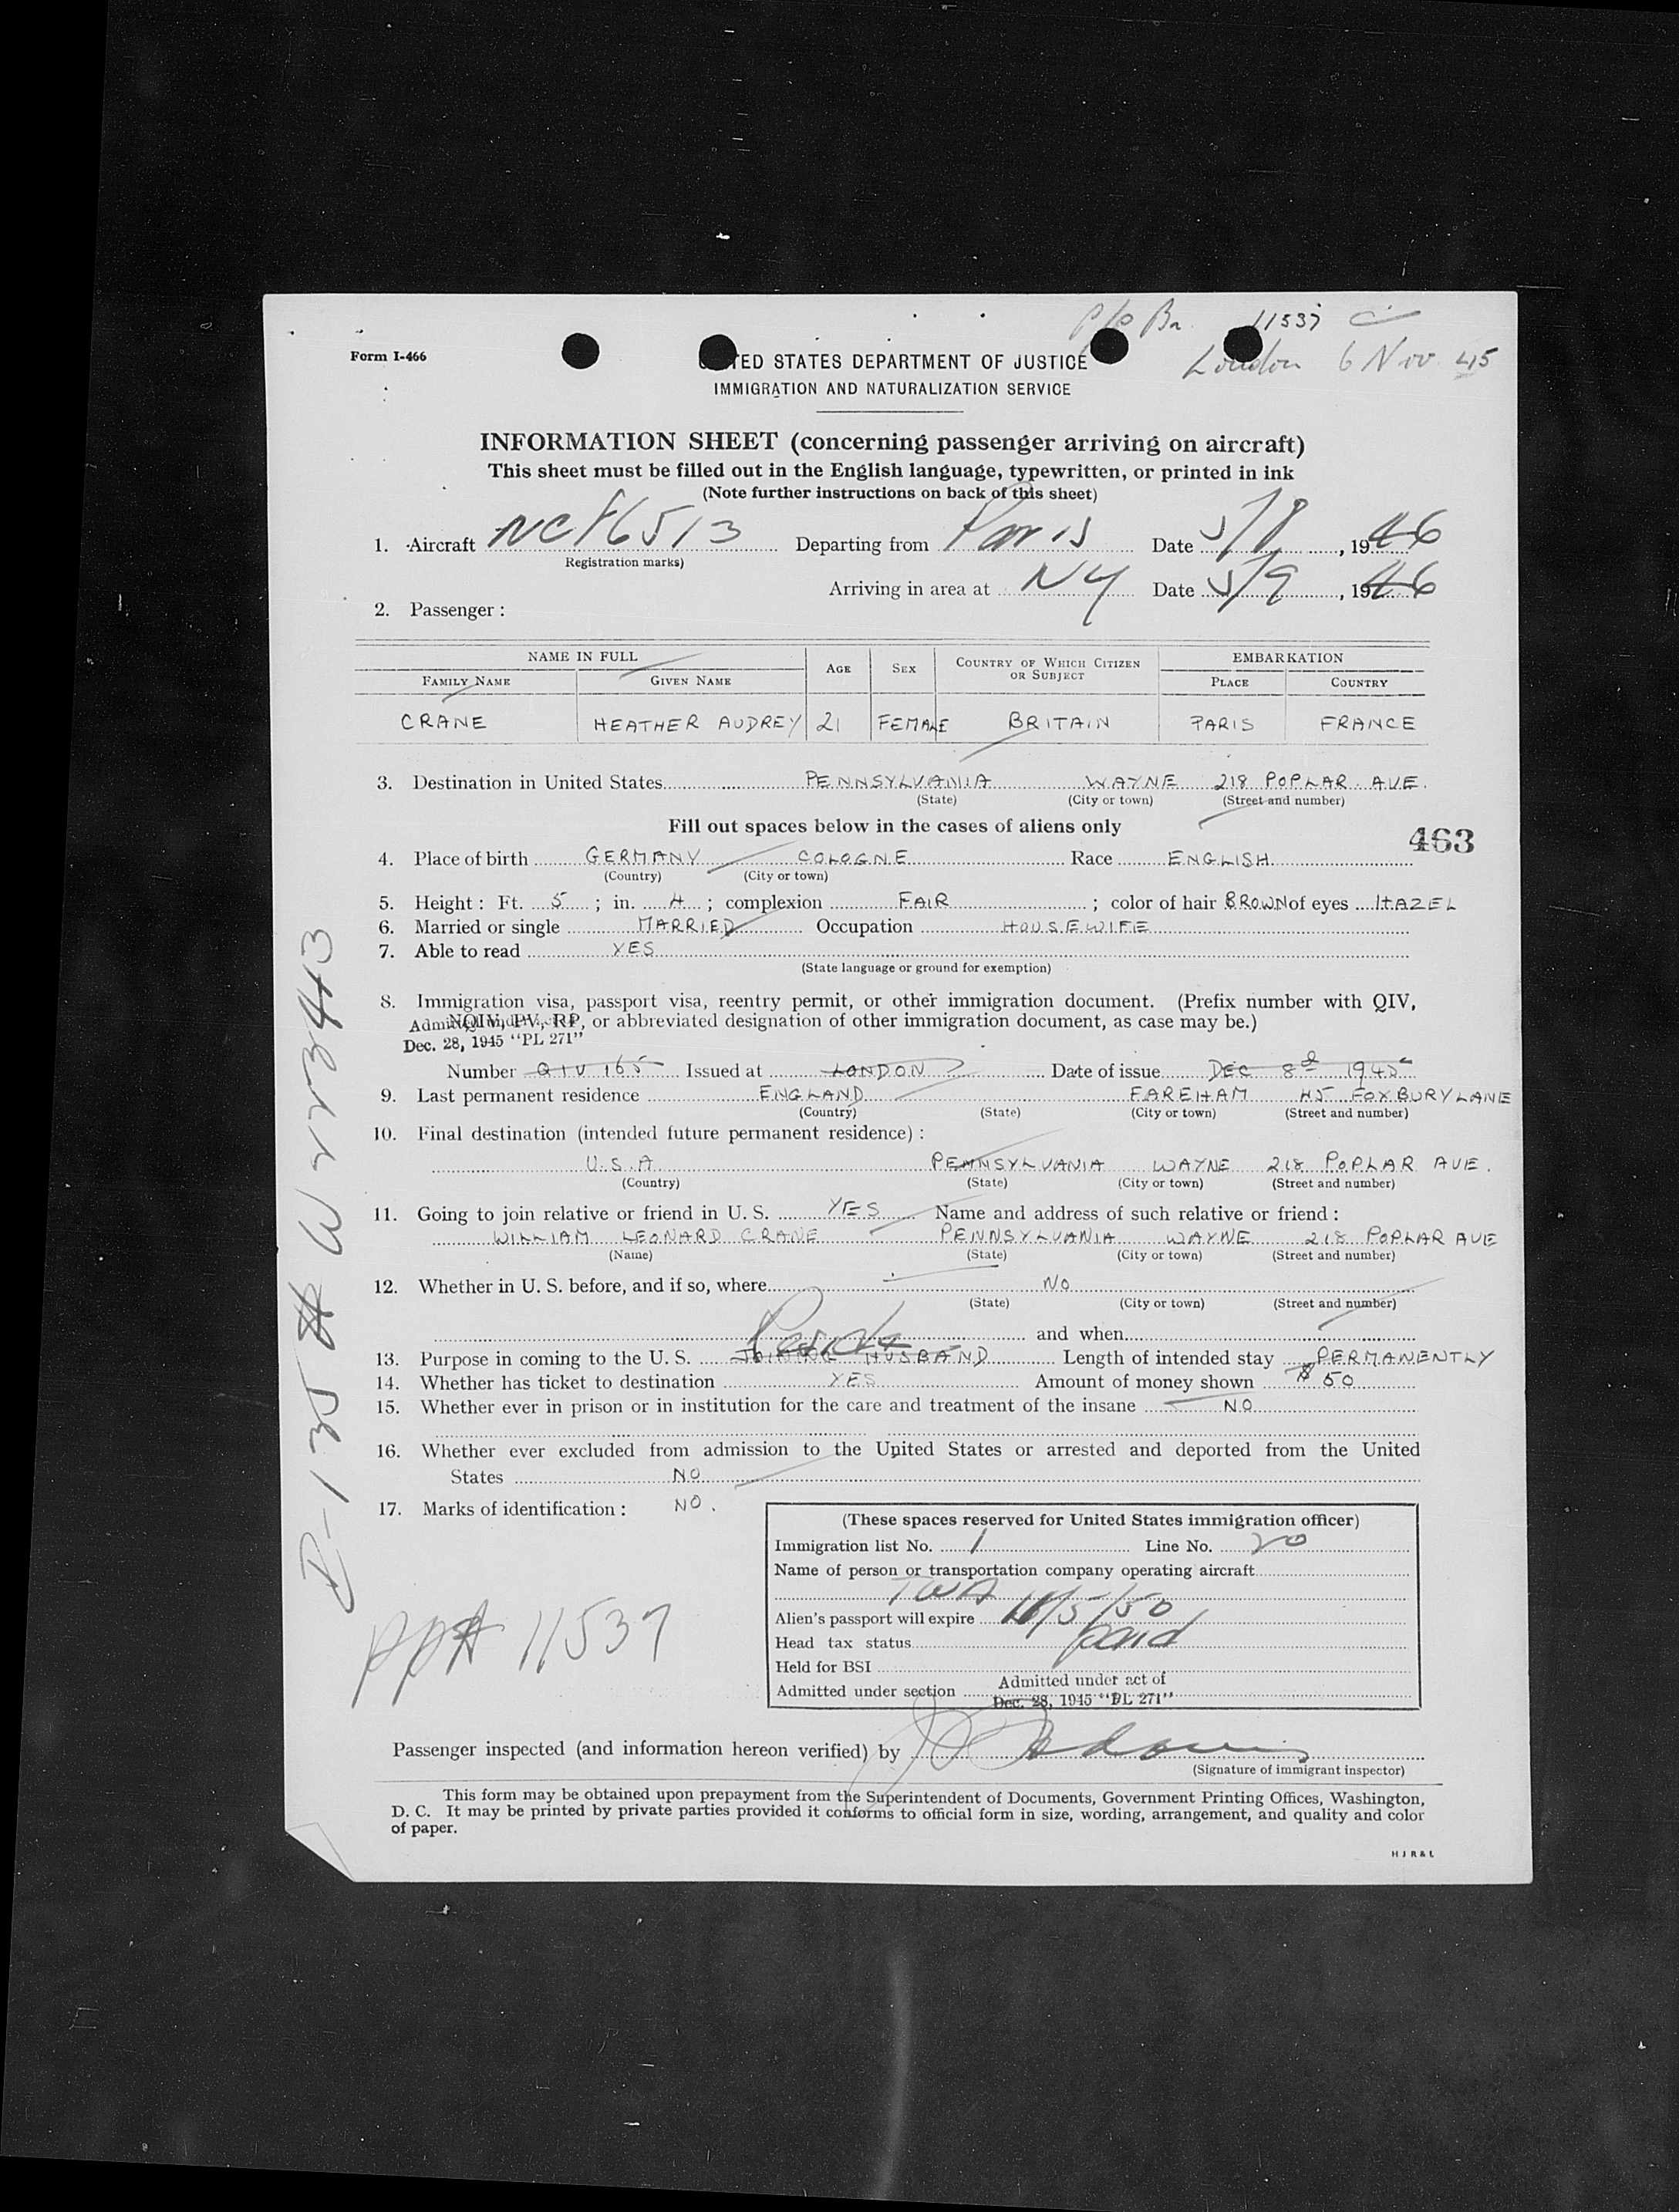 P/O Br. 11537
London 6 Nov. 45
Form I-466
UNITED STATES DEPARTMENT OF JUSTICE
IMMIGRATION AND NATURALIZATION SERVICE
INFORMATION SHEET (concerning passenger arriving on aircraft)
This sheet must be filled out in the English language, typewritten, or printed in ink
(Note further instructions on back of this sheet)
1. Aircraft Departing from Paris Date 5/8, 1946
Registration marks)
Arriving in area at NY Date 5/9, 1946
2. Passenger:
NAME IN FULL AGE SEX COUNTRY OF WHICH CITIZEN OR SUBJECT EMBARKATION
FAMILY NAME GIVEN NAME PLACE COUNTRY
CRANE HEATHER AUDREY 21 FEMALE BRITAIN PARIS FRANCE
3. Destination in United States PENNSYLVANIA WAYNE 218 POPLAR AVE.
(State) (City or town) (Street and number)
Fill out spaces below in the cases of aliens only
463
4. Place of birth GERMANY COLOGNE Race ENGLISH
(Country) (City or town)
5. Height: Ft. 5; in. 4; complexion FAIR; color of hair BROWN of eyes HAZEL
6. Married or single MARRIED Occupation HOUSEWIFE
7. Able to read YES
(State language or ground for exemption)
8. Immigration visa, passport visa, reentry permit, or other immigration document. (Prefix number with QIV,
NQIV, PV, RP, or abbreviated designation of other immigration document, as case may be.)
Dec. 28, 1945 "PL 271"
Number QIV 165 Issued at LONDON Date of issue DEC 8d 1945
9. Last permanent residence ENGLAND FAREHAM 45 FOXBURY LANE
(Country) (State) (City or town) (Street and number)
10. Final destination (intended future permanent residence):
U.S.A. PENNSYLVANIA WAYNE 218 POPLAR AVE.
(Country) (State) (City or town) (Street and number)
11. Going to join relative or friend in U. S. YES Name and address of such relative or friend:
WILLIAM LEONARD CRANE PENNSYLVANIA WAYNE 218 POPLAR AVE
(Name) (State) (City or town) (Street and number)
12. Whether in U. S. before, and if so, where NO
(State) (City or town) (Street and number)
and when
Reside
13. Purpose in coming to the U. S. JOINING HUSBAND Length of intended stay PERMANENTLY
14. Whether has ticket to destination YES Amount of money shown $ 50
15. Whether ever in prison or in institution for the care and treatment of the insane NO
16. Whether ever excluded from admission to the United States or arrested and deported from the United
States NO
17. Marks of identification: NO.
(These spaces reserved for United States immigration officer)
Immigration list No. 1 Line No. 20
Name of person or transportation company operating aircraft
TWA
Alien's passport will expire 11/5/50
Head tax status paid
Held for BSI
Admitted under section Admitted under act of
Dec. 28, 1945 "PL 271"
PP# 11537
Passenger inspected (and information hereon verified) by
(Signature of immigrant inspector)
This form may be obtained upon prepayment from the Superintendent of Documents, Government Printing Offices, Washington,
D. C. It may be printed by private parties provided it conforms to official form in size, wording, arrangement, and quality and color
of paper.
H J R & L